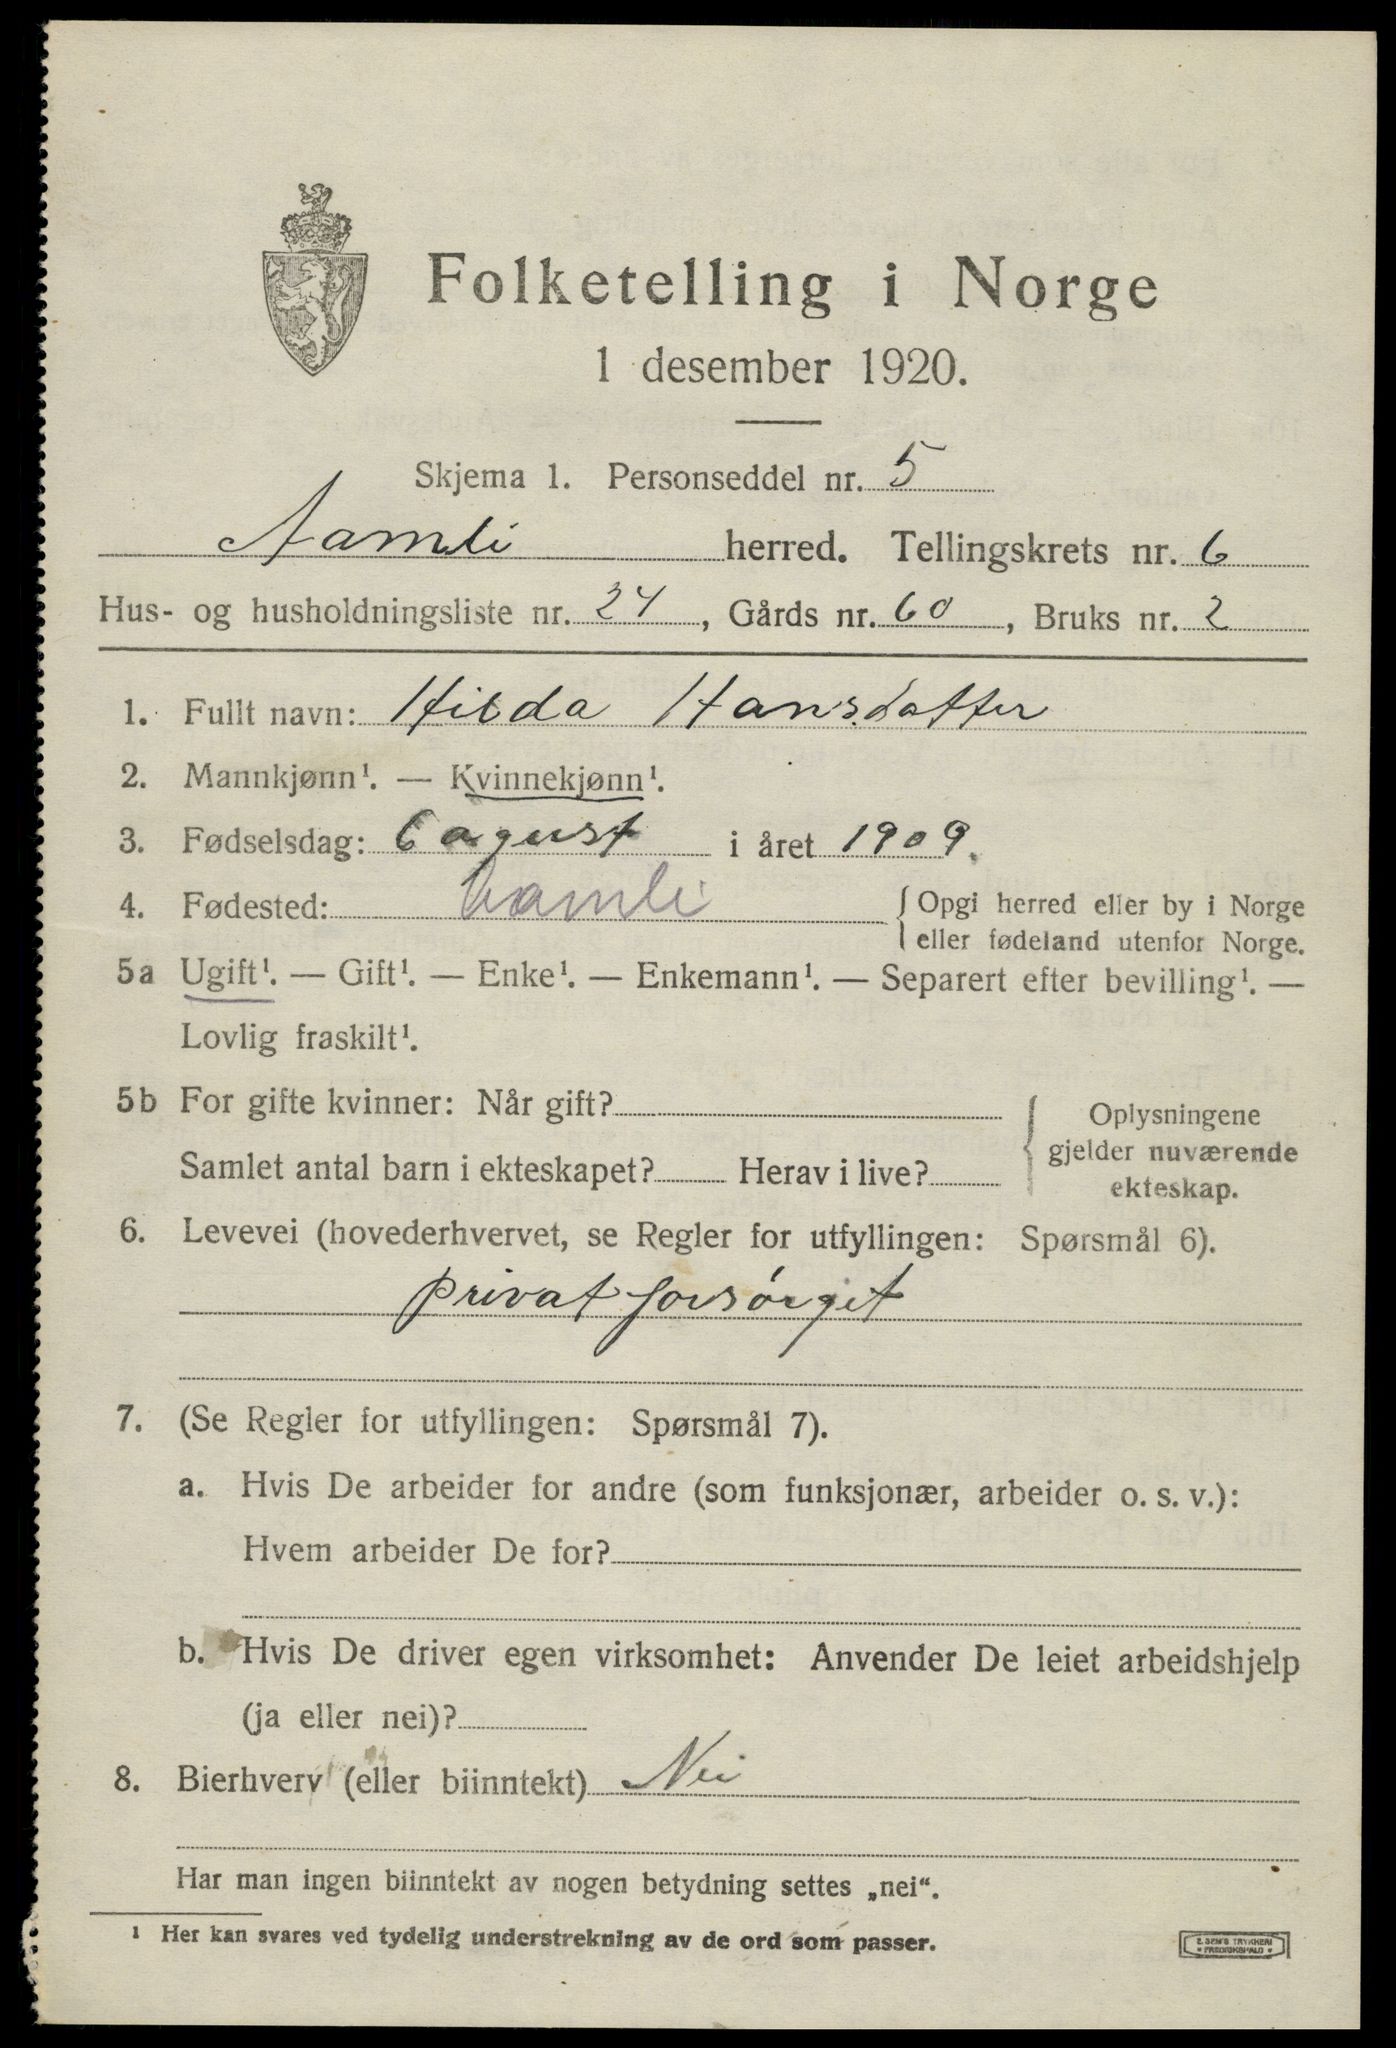 Folketelling i Norge
1 desember 1920.
Skjema 1. Personseddel nr. 5
Aamli herred. Tellingskrets nr. 6
Hus- og husholdningsliste nr. 24, Gårds nr. 60, Bruks nr. 2
1. Fullt navn: Hilda Hansdatter
2. Mannkjønn¹. — Kvinnekjønn¹.
3. Fødselsdag: 6 agust i året 1909.
4. Fødested: Aamli { Opgi herred eller by i Norge
eller fødeland utenfor Norge.
5a Ugift¹. — Gift¹. — Enke¹. — Enkemann¹. — Separert efter bevilling¹. —
Lovlig fraskilt¹.
5b For gifte kvinner: Når gift? Oplysningene
gjelder nuværende
Samlet antal barn i ekteskapet? Herav i live? ekteskap.
6. Levevei (hovederhvervet, se Regler for utfyllingen: Spørsmål 6).
privat forsørget
7. (Se Regler for utfyllingen: Spørsmål 7).
a. Hvis De arbeider for andre (som funksjonær, arbeider o. s. v.):
Hvem arbeider De for?
b. Hvis De driver egen virksomhet: Anvender De leiet arbeidshjelp
(ja eller nei)?
8. Bierhverv (eller biinntekt) Nei
Har man ingen biinntekt av nogen betydning settes „nei“.
¹ Her kan svares ved tydelig understrekning av de ord som passer.
E. SEM'S TRYKKERI
* FREDRIKSHALD *